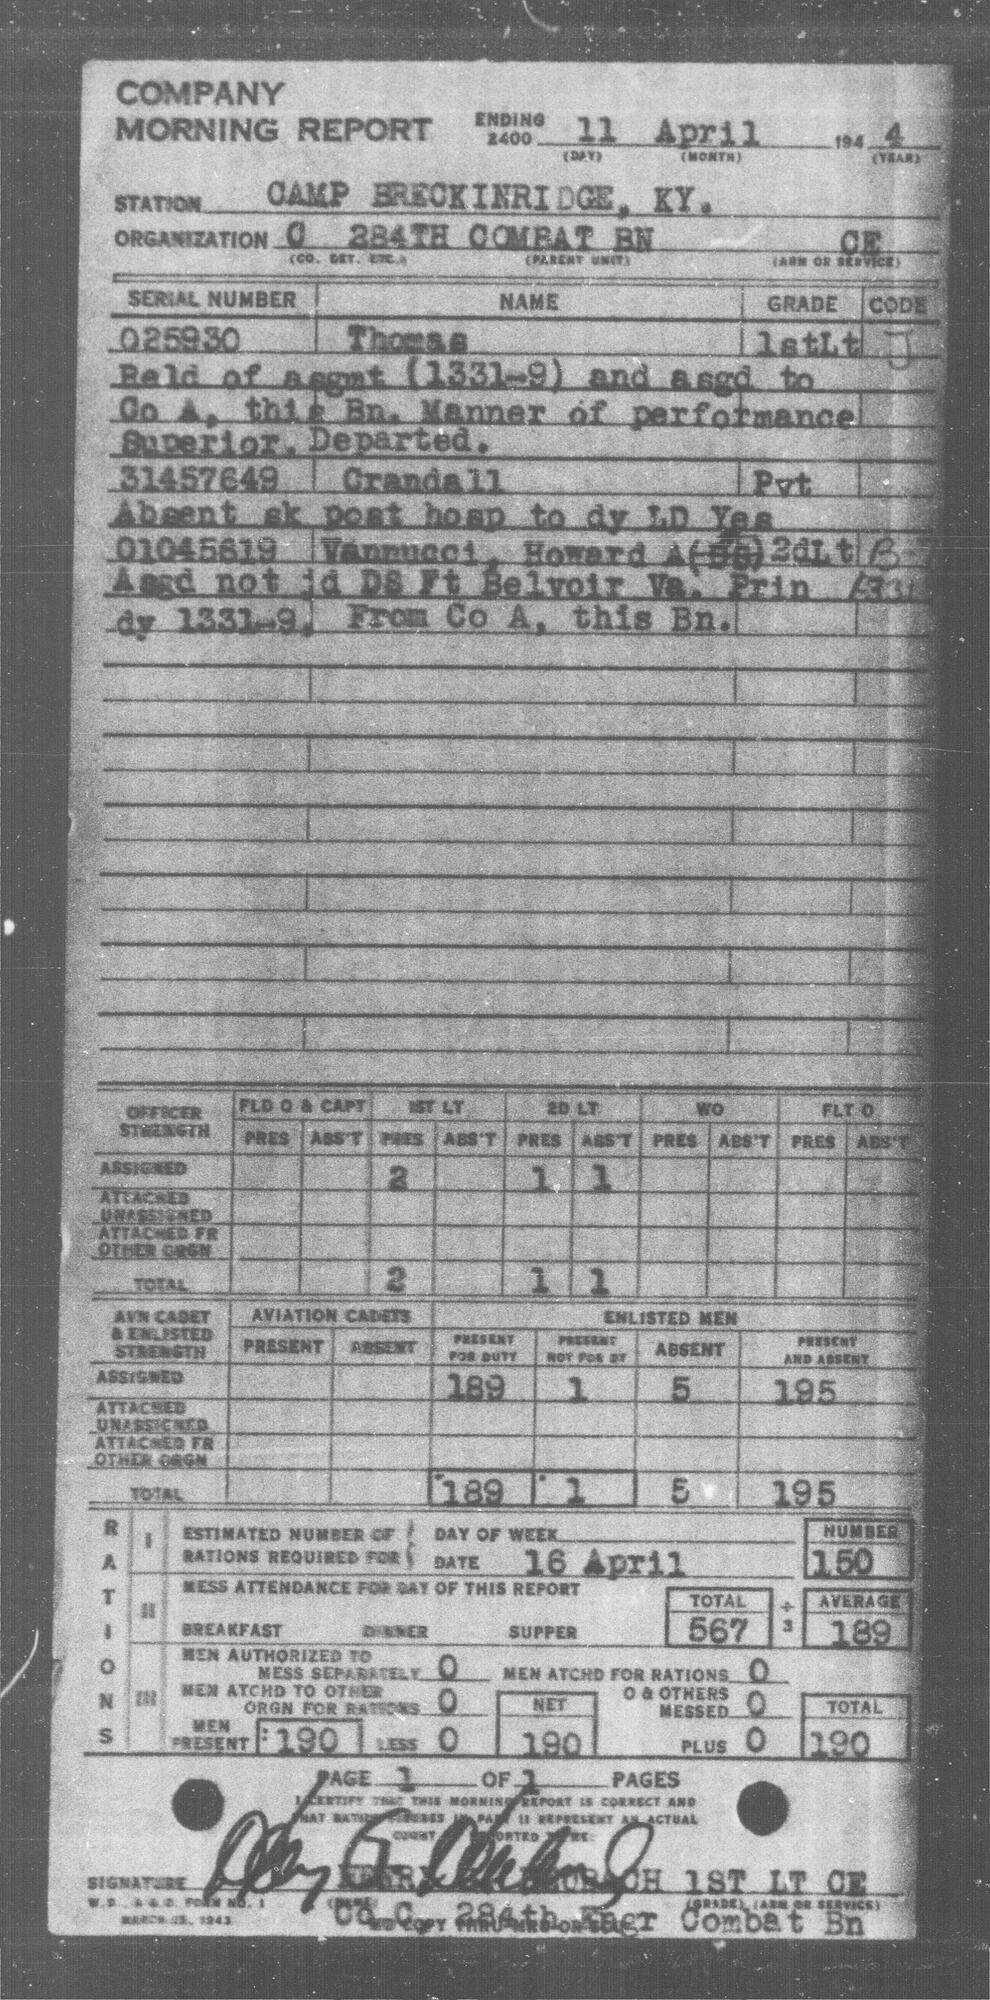 COMPANY
MORNING REPORT ENDING 2400 11 April 194 4
(DAY) (MONTH) (YEAR)
STATION CAMP BRECKINRIDGE, KY.
ORGANIZATION C 284TH COMBAT BN CE
(CO. DET. ETC.) (PARENT UNIT) (ARM OR SERVICE)
SERIAL NUMBER NAME GRADE CODE
025930 Thomas 1stLt J
Reld of asgmt (1331-9) and asgd to
Co A, this Bn. Manner of performance
Superior. Departed.
31457649 Crandall Pvt
Absent sk post hosp to dy LD Yes
01045619 Vannucci, Howard A 2dLt B
Asgd not jd DS Ft Belvoir Va. Prin
dy 1331-9. From Co A, this Bn.
OFFICER STRENGTH FLD O & CAPT 1ST LT 2D LT WO FLT O
PRES ABS'T PRES ABS'T PRES ABS'T PRES ABS'T PRES ABS'T
ASSIGNED 2 1 1
ATTACHED UNASSIGNED
ATTACHED FR OTHER ORGN
TOTAL 2 1 1
AVN CADET & ENLISTED STRENGTH AVIATION CADETS ENLISTED MEN
PRESENT ABSENT PRESENT FOR DUTY PRESENT NOT FOR DY ABSENT PRESENT AND ABSENT
ASSIGNED 189 1 5 195
ATTACHED UNASSIGNED
ATTACHED FR OTHER ORGN
TOTAL 189 1 5 195
RATIONS
I ESTIMATED NUMBER OF DAY OF WEEK NUMBER
RATIONS REQUIRED FOR DATE 16 April 150
II MESS ATTENDANCE FOR DAY OF THIS REPORT TOTAL ÷ 3 AVERAGE
BREAKFAST DINNER SUPPER 567 189
III MEN AUTHORIZED TO MESS SEPARATELY 0 MEN ATCHD FOR RATIONS 0
MEN ATCHD TO OTHER ORGN FOR RATIONS 0 NET O & OTHERS MESSED 0 TOTAL
MEN PRESENT 190 LESS 0 190 PLUS 0 190
PAGE 1 OF 1 PAGES
I CERTIFY THAT THIS MORNING REPORT IS CORRECT AND
THAT RATION FIGURES IN PART II REPRESENT AN ACTUAL
COUNT
SIGNATURE 1ST LT CE
W.D., A.G.O. FORM NO. 1 (GRADE) (ARM OR SERVICE)
MARCH 23, 1943 Co C, 284th Engr Combat Bn